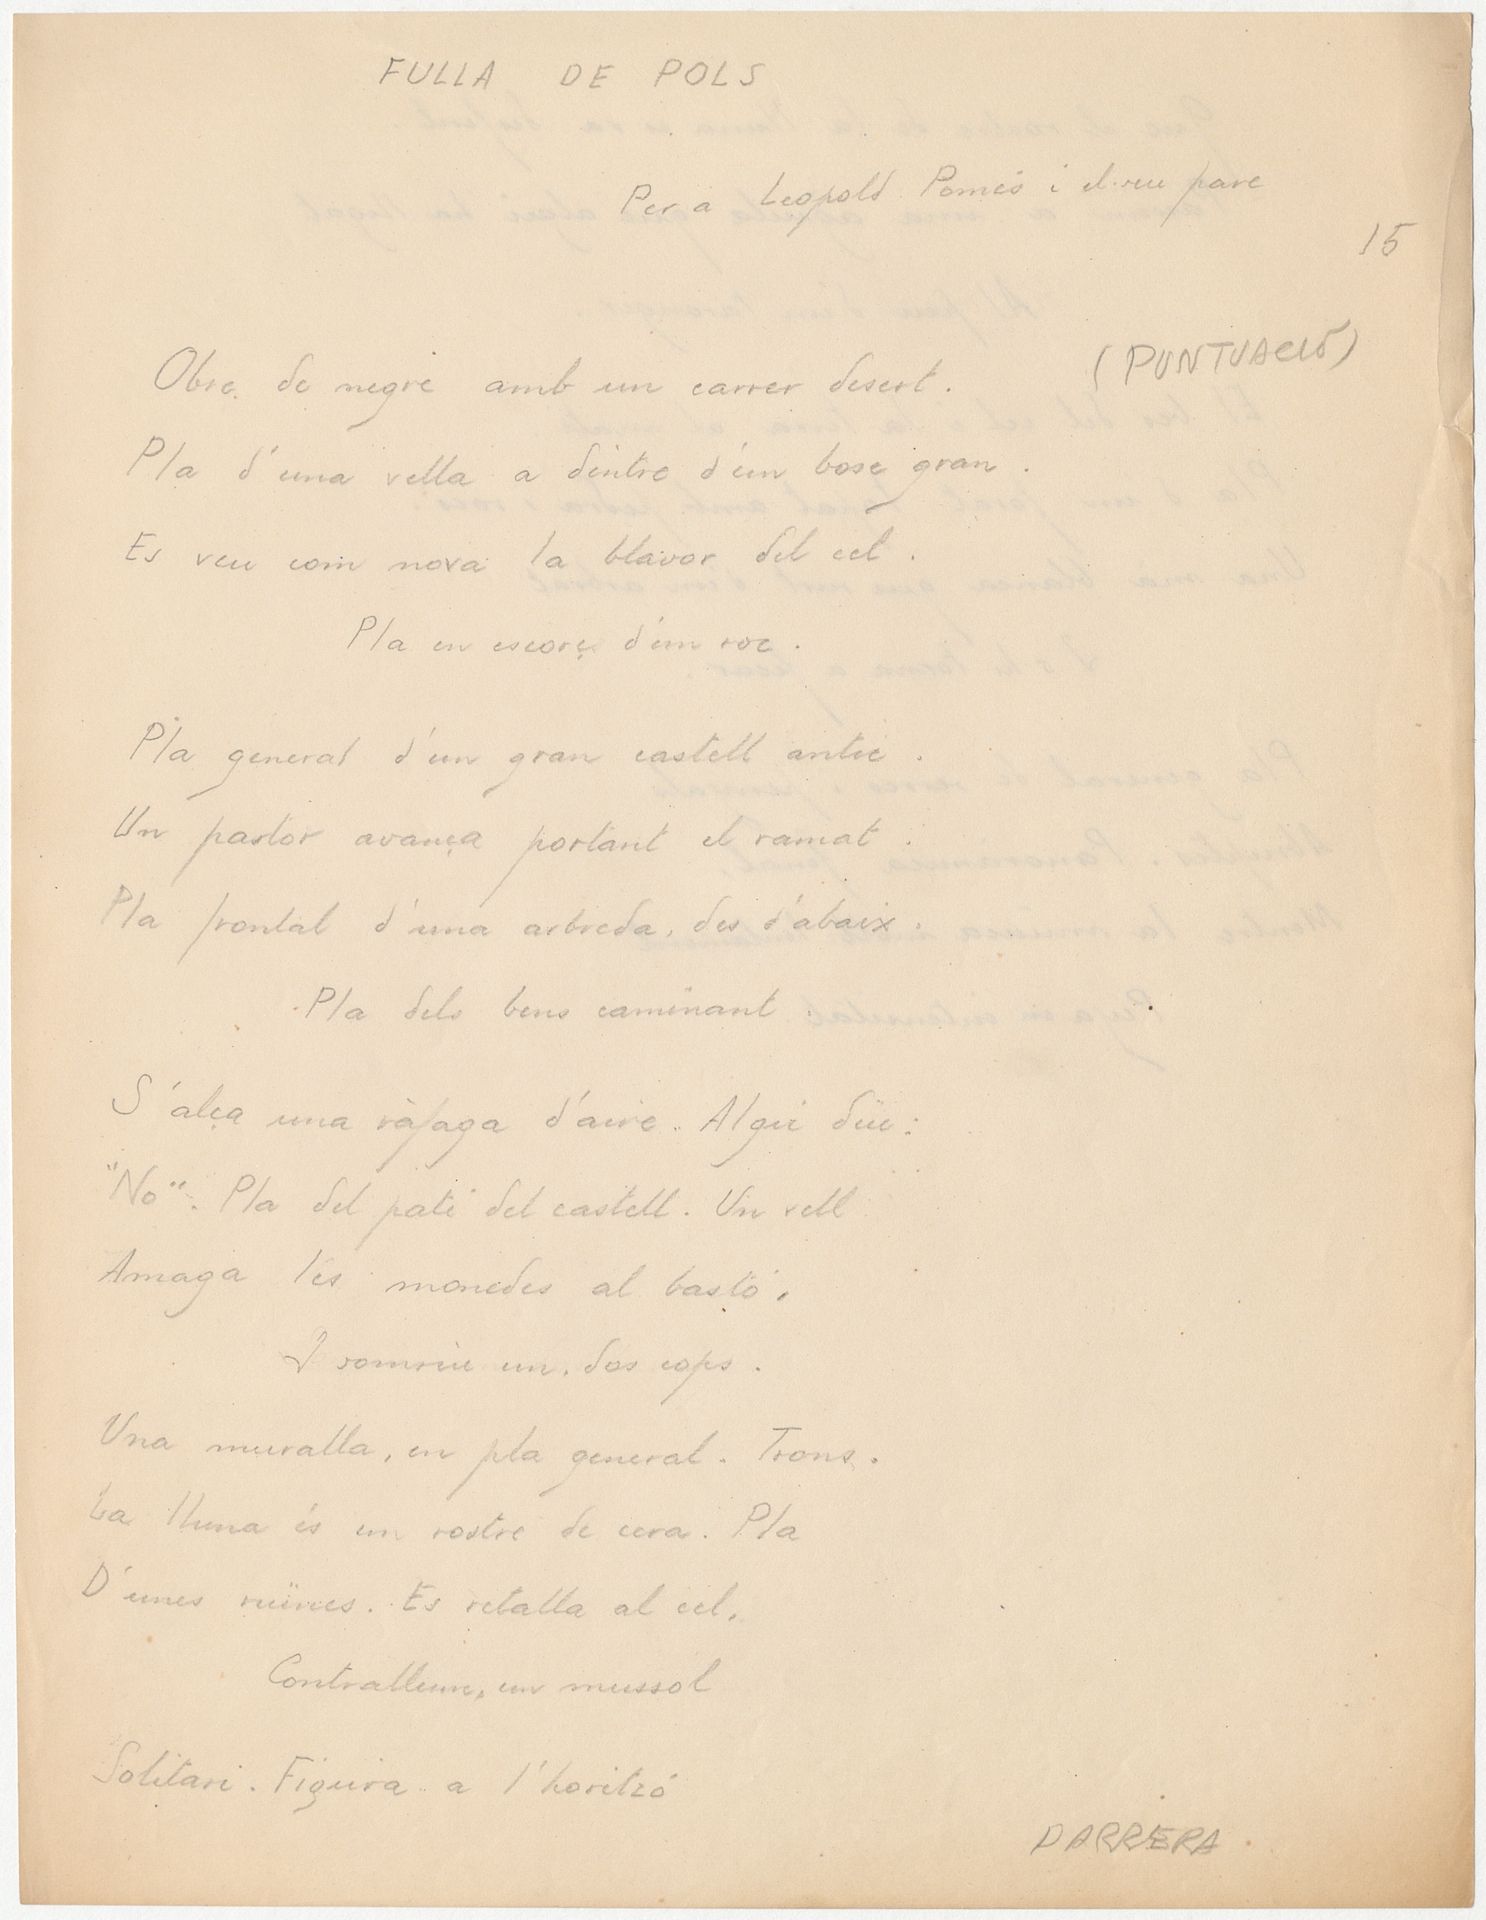 FULLA DE POLS
Per a Leopold Pomés i el seu pare
15
(PUNTUACIÓ)
Obre de negre amb un carrer desert.
Pla d'una vella a dintre d'un bosc gran.
Es veu com nova la blavor del cel.
Pla en escorç d'un roc.
Pla general d'un gran castell antic.
Un pastor avança portant el ramat.
Pla frontal d'una arbreda, des d'abaix.
Pla dels bens caminant.
S'alça una ràfaga d'aire. Algú diu:
"No". Pla del pati del castell. Un vell
Amaga les monedes al bastó,
I somriu un, dos cops.
Una muralla, en pla general. Trons.
La lluna és un rostre de cera. Pla
D'unes ruïnes. Es retalla al cel,
Contrallum, un mussol
Solitari. Figura a l'horitzó
DARRERA